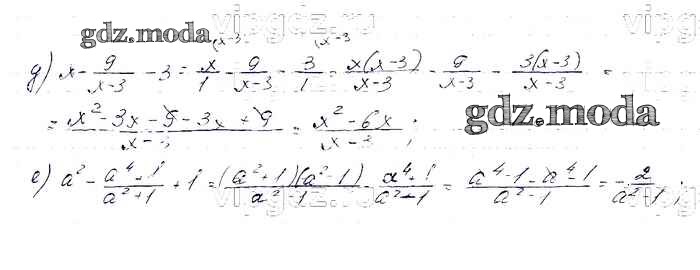 vipgdz.ru
gdz.moda
(x-3 (x-3
g) x - 9/(x-3) - 3 = x/1 - 9/(x-3) - 3/1 = x(x-3)/(x-3) - 9/(x-3) - 3(x-3)/(x-3) =
= (x² - 3x - 9 - 3x + 9)/(x-3) = (x² - 6x)/(x-3) ;
gdz.moda
e) a² - (a⁴+1)/(a²+1) + 1 = (a²+1)(a²-1)/(a²-1) - (a⁴+1)/(a²+1) = (a⁴-1-a⁴-1)/(a²-1) = -2/(a²-1) ;
vipgdz.ru